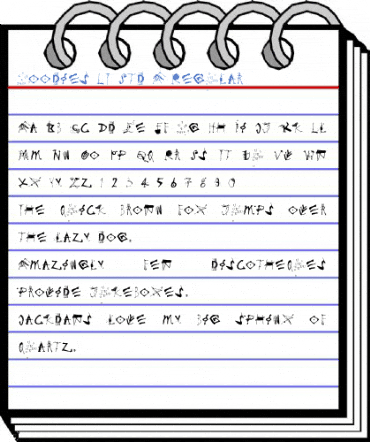 GOODIES LT STD A REGULAR
AA BB CC DD EE FF GG HH II JJ KK LL
MM NN OO PP QQ RR SS TT UU VV WW
XX YY ZZ 1 2 3 4 5 6 7 8 9 0
THE QUICK BROWN FOX JUMPS OVER
THE LAZY DOG.
AMAZINGLY FEW DISCOTHEQUES
PROVIDE JUKEBOXES.
JACKDAWS LOVE MY BIG SPHINX OF
QUARTZ.